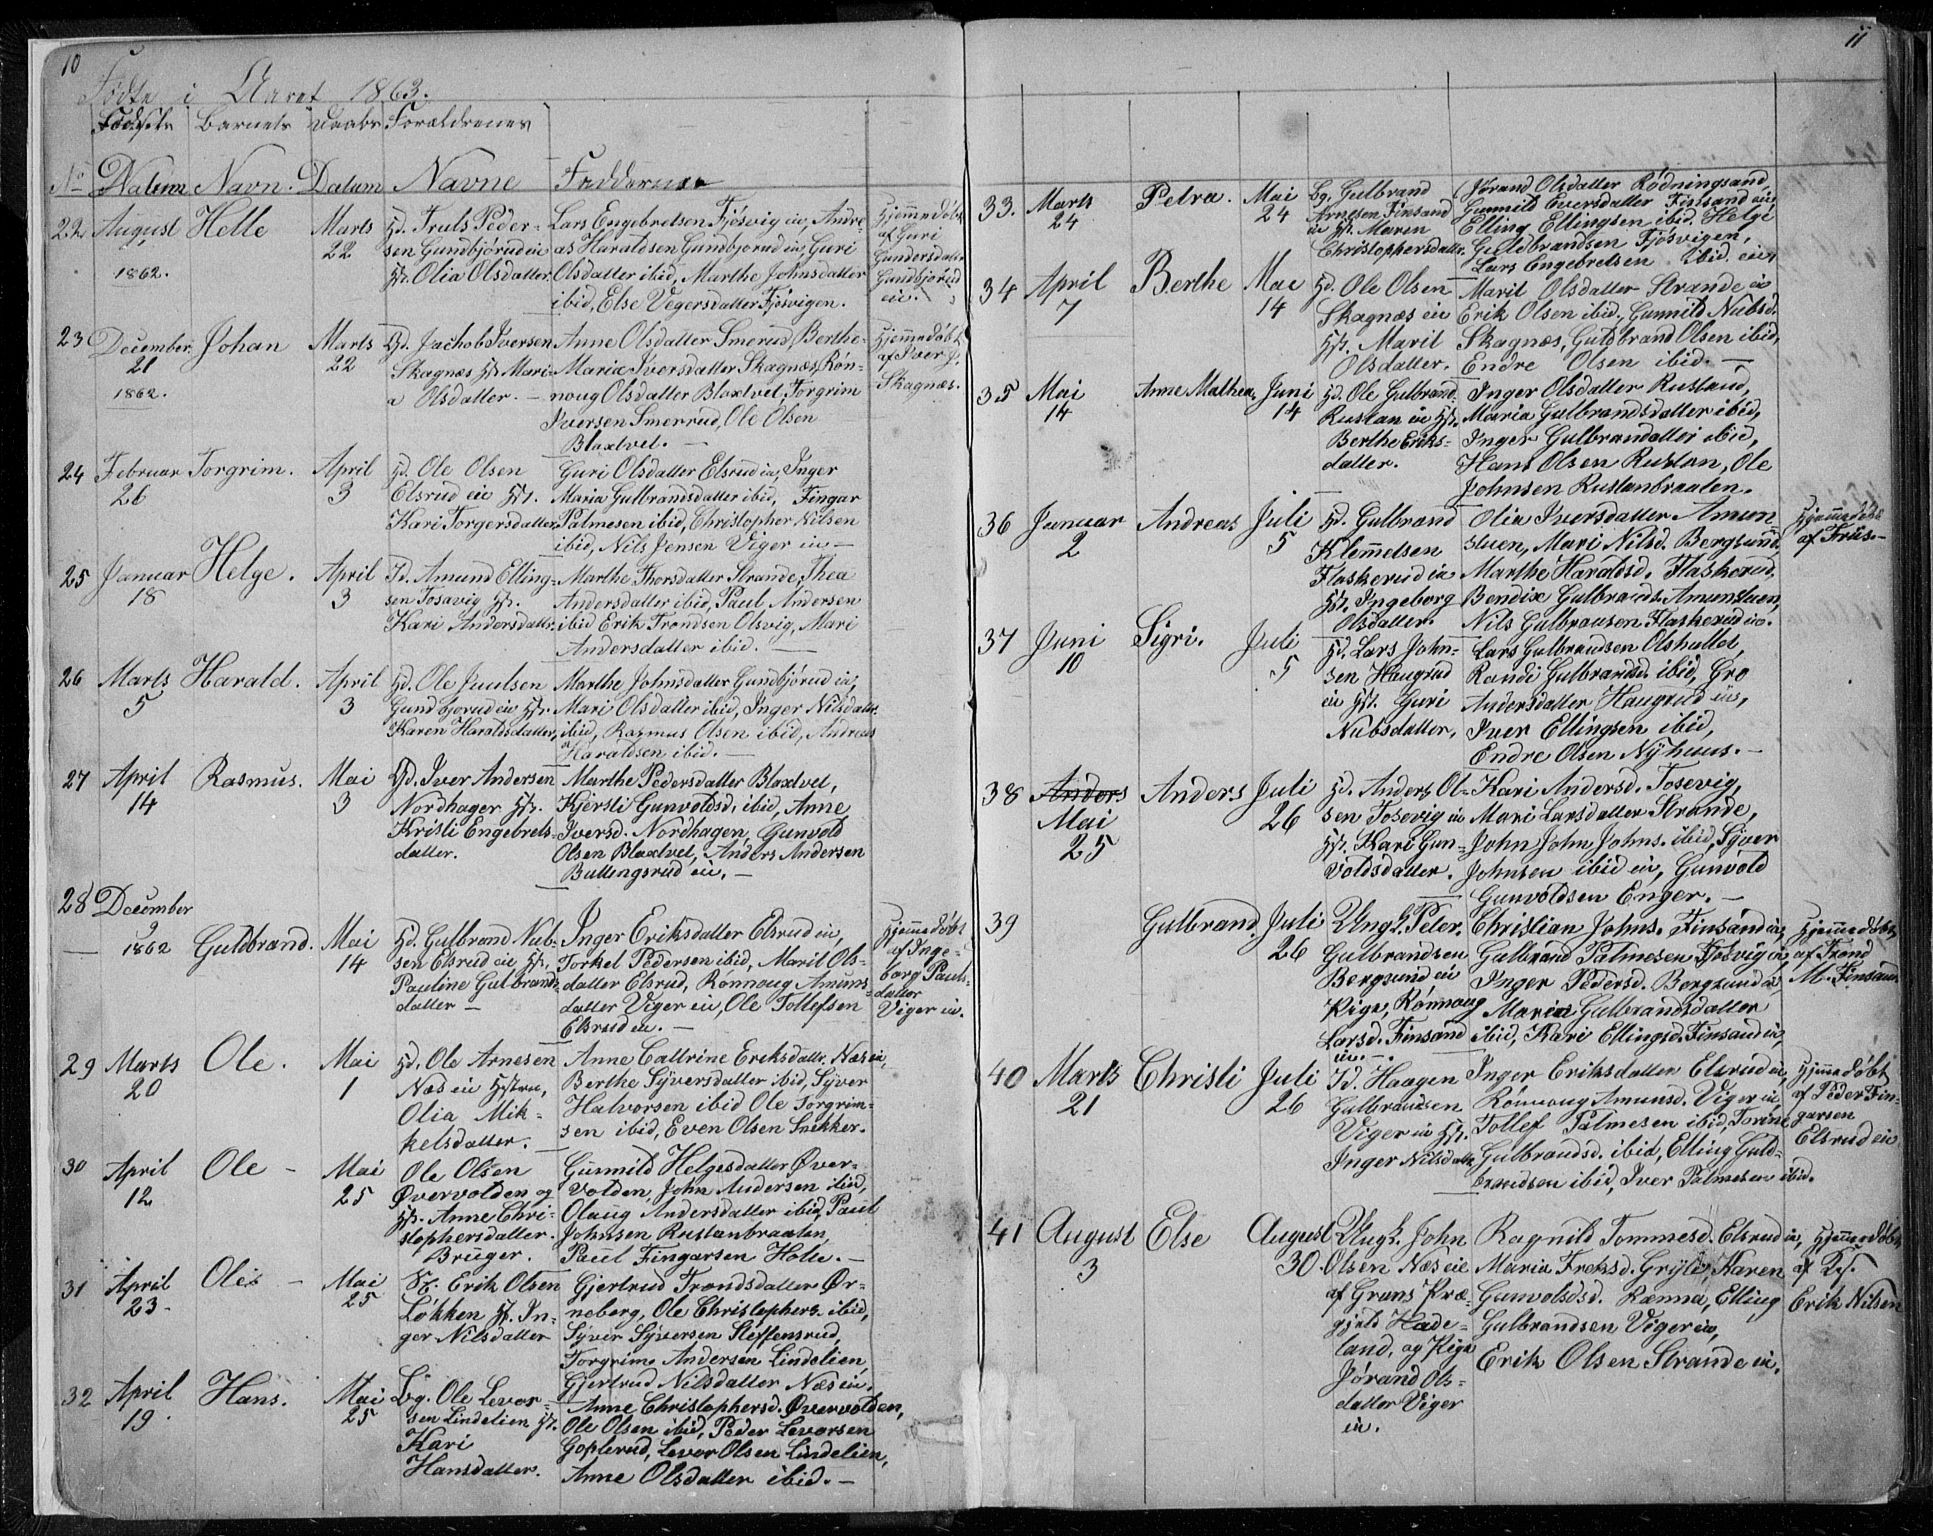 10
Fødte i Aaret 1863.
Fødsels Barnets Daabs Forældrenes
No Datum Navn. Datum Navne Fadderne
22 August 1862. Helle Marts 22
Hd. Truls Peder-
sen Gundbjörud eie
Hst. Olia Olsdatter
Lars Engebretsen Fjösvig eie, Andre-
as Haraldsen Gundbjorud eie, Guri
Olsdatter ibid, Marthe Johnsdatter
ibid, Else Vegersdatter Fjösvigen.
Hjemmedöbt
af Guri
Gundersdatter
Gundbjörud
eie.
23 December 21 1862. Johan Marts 22
Hd. Jachob Iversen
Skagnæs Hst. Mari-
a Olsdatter. —
Anne Olsdatter Smerud, Berthe-
Maria Iversdatter Skagnæs, Rön-
noug Olsdatter Blaxtvet, Torgrim
Iversen Smerrud, Ole Olsen
Blaxtvet. —
Hjemmedöbt
af Iver J.
Skagnæs.
24 Februar 26 Torgrim. April 3
Hd. Ole Olsen
Elsrud eie Hst.
Kari Torgersdatter
Guri Olsdatter Elsrud eie, Inger
Maria Gulbrandsdatter ibid, Fingar
Palmesen ibid, Christopher Nilsen
ibid, Nils Jensen Viger eie —
25 Januar 18 Helge. April 3
Id. Amund Elling-
sen Tosavig Hst.
Kari Andersdattr.
Marthe Thorsdatter Strande, Thea
Andersdatter ibid, Paul Andersen
ibid Erik Trondsen Olsvig, Mari
Andersdatter ibid. —
26 Marts 5 Harald. April 3
Hd. Ole Juulsen
Gundbjorud eie Hst.
Karen Haraldsdatter,
Marthe Johnsdatter Gundbjörud eie,
Mari Olsdatter ibid, Inger Nilsdatter
ibid, Rasmus Olsen ibid, Andreas
Haraldsen ibid. —
27 April 14 Rasmus. Mai 3
Hd. Iver Andersen
Nordhagen Hst.
Kristi Engebrets-
datter.
Marthe Pedersdatter Blaxtvet,
Kjersti Gunvoldsd. ibid, Anne
Iversd. Nordhagen, Gunvold
Olsen Blaxtvet, Anders Andersen
Bullingsrud eie. —
28 December 9 1862 Guldbrand. Mai 14
Hd. Gulbrand Nub-
sen Elsrud eie Hst.
Pauline Gulbrands-
datter —
Inger Eriksdatter Elsrud eie,
Torkel Pedersen ibid, Marit Ols-
datter Elsrud, Rönnoug Amunds-
datter Viger eie, Ole Tollefsen
Elsrud eie. —
Hjemmedöbt
af Inge-
borg Pauls-
datter
Viger eie.
29 Marts 20 Ole. Mai 1
Hd. Ole Arnesen
Næs eie Hstru,
Olia Mik-
kelsdatter.
Anne Cathrine Eriksdattr. Næs eie,
Berthe Syversdatter ibid, Syver
Halvorsen ibid Ole Torgrim-
sen ibid, Even Olsen Snekker.
30 April 12 Ole — Mai 25
Ole Olsen
Øvervolden og
Hst. Anne Chri-
stophersdatter.
Brüger.
Gunnild Helgesdatter Øver-
volden, John Andersen ibid,
Olaug Andersdatter ibid, Paul
Johnsen Rustanbraaten,
Paul Fingarsen Holte. —
31 April 23 Oles — Mai 25
Sr. Erik Olsen
Løkken Hst. In-
ger Nilsdatter
Gjertrud Trondsdatter Ør-
neberg, Ole Christophers. ibid,
Syver Syversen Steffensrud,
Torgrim Andersen Lindelien,
Gjertrud Nilsdatter Næs eie.
32 April 19. Hans. Mai 25
Lg. Ole Levor-
sen Lindelien Hst.
Kari
Hansdatter.
Anne Christophersd. Øvervolden,
Ole Olsen ibid, Peder Levorsen
Goplerud, Levor Olsen Lindelien,
Anne Olsdatter ibid. —
11
33. Marts 24 Petra. Mai 24
Lg. Gulbrand
Arnesen Finsand
eie Hst. Maren
Christophersdattr.
Jörand Olsdatter Rödningsand,
Gunnild Eversdatter Finsand eie
Elling Ellingsen ibid. Helge
Guldbrandsen Fjösvigen,
Lars Engebretsen ibid. eie,
34 April 7 Berthe Mai 14
Hd. Ole Olsen
Skagnæs eie
Hst. Marit
Olsdatter.
Marit Olsdatter Strande eie
Erik Olsen ibid, Gunnild Nubsd.
Skagnæs, Guldbrand Olsen ibid,
Endre Olsen ibid. —
35 Mai 14 Anne Mathea, Juni 14
Hd. Ole Gulbrand.
Rustan eie Hst.
Berthe Eriks-
datter.
Inger Olsdatter Rustand,
Maria Gulbrandsdatter ibid,
Inger Gulbrandatter ibid,
Hans Olsen Rustan, Ole
Johnsen Rustanbraaten.
36 Januar 2 Andreas Juli 5
Hd. Gulbrand
Klemmetsen
Flaskerud eie
Hst. Ingeborg
Olsdatter.
Olia Iversdatter Amun-
stuen, Mari Nilsd. Bergsund.
Marthe Haraldsd. Flaskerud,
Bendix Gulbrands. Amunstuen,
Nils Gulbransen Flaskerud eie.
Hjemmedöbt
af Friis—
37 Juni 10 Sigri. Juli 5
Hd. Lars John-
sen Haugrud
eie Hst. Guri
Nubsdatter,
Lars Gulbrandsen Olshullet,
Randi Gulbrandsd. ibid, Gro
Andersdatter Haugrud eies,
Iver Ellingsen ibid,
Endre Olsen Nyhuus. —
38 Anders Mai 25 Anders Juli 26
Hd. Anders Ol-
sen Tosevig eie
Hst. Kari Gun-
voldsdatter.
Kari Andersd. Tosevig,
Mari Larsdatter Strande,
John John Johns. ibid, Syver
Johnsen ibid eie, Gunvold
Gunvoldsen Enger. —
39 Gulbrand Juli 26
Ungk. Peter
Gulbrandsen
Bergsund eie
Pige, Rönnoug
Larsd. Finsand
eie. —
Christian Johns. Finsand eie,
Gulbrand Palmesen Fjösvig eie
Inger Pedersd. Bergsund eie
Maria Gulbrandsdatter
ibid, Kari Ellingsd. Finsand eie,
Hjemmedöbt
af Trond
M. Finsand
40 Marts 21 Christi Juli 26
Id. Haagen
Gulbrandsen
Viger eie Hst.
Inger Nilsdattr.
Inger Eriksdatter Elsrud eie,
Rönnoug Amunsd. Viger eie
Tollef Palmesen ibid, Torine
Gulbrandsd. ibid, Elling Guld-
brandsen ibid, Iver Palmesen ibid.
Hjemmedöbt
af Peder Fin-
garsen
Elsrud eie
41 August 3 Else August 30.
Ungk. John
Olsen Næs eie
af Grans Præ-
gjeld Hade-
land, og Pige
Jörand Ols-
datter Viger
eie.
Ragnild Tommesd. Elsrud eie,
Maria Freksd. Grytr, Karen
Gunvolsdsd. Rænna, Elling
Gulbrandsen Viger eie,
Erik Olsen Strande eie.
Hjemmedöbt
af
Erik Nilsen